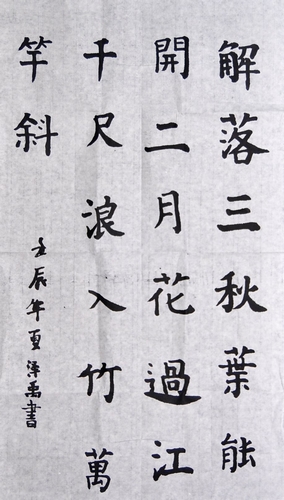 解落三秋葉能
開二月花過江
千尺浪入竹萬
竿斜
壬辰年夏梁禹書